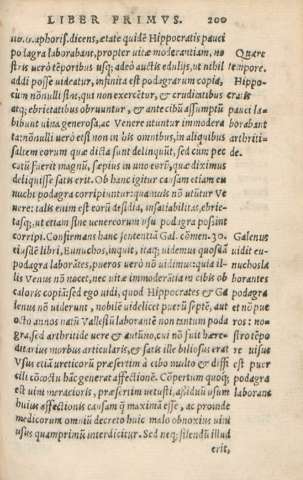 LIBER PRIMVS. 200
aphoris. dicens, ætate quidẽ Hippocratis pauci
podagra laborabant, propter uitæ moderantiam, no
stris uerò tẽporibus usq; adeò auctis edulijs, ut nihil
addi posse uideatur, infinita est podagrarum copia,
cùm nõnulli sint, qui non exercẽtur, & cruditatibus
atq; ebrietatibus obruuntur, & ante cibũ assumptũ
bibunt uina generosa, ac Venere utuntur immodera
ta: nõnulli uerò etsi non in his omnibus, in aliquibus
saltem eorum quæ dicta sunt delinquũt, sed cum pec
catũ fuerit magnũ, sæpius in uno eorũ, quæ diximus
deliquisse satis erit. Ob hanc igitur causam etiam eu
nuchi podagra corripiuntur: quamuis nõ utũtur Ve
nere: talis enim est eorũ desidia, insatiabilitas, ebrie-
tasq;, ut etiam sine uenereorum usu podagra possint
corripi. Confirmans hanc sententiã Gal. cõmen. 30.
iãstẽ libri, Eunuchos, inquit, itaq; uidemus quosdã
podagra laborãtes, pueros uerò nõ uidimus: quia il-
lis Venus nõ nocet, nec uitæ immoderãtia in cibis ob
caloris copiã: sed ego uidi, quod Hippocrates & Ga
lenus nõ uiderunt, nobilẽ uidelicet puerũ septẽ, aut
octo annos natũ Vallesoli laborantẽ non tantum poda
gra, sed arthritide uere & antiuo, cui nõ fuit hære-
ditarius morbus articularis, & satis ille biliosus erat
Vsus etiã ureticorũ præsertim à cibo multo & diffi
cili cõcoctu hãc generat affectionẽ. Cõpertum quoq;
est uini meracioris, præsertim uetusti, assiduũ usum
huius affectionis causam q̃ maximã esse, ac proinde
medicorum omniũ decreto huic malo obnoxius uini
usus quamprimũ interdicitur. Sed neq; silendũ illud
erit,
Quare
tempore.
Hippo-
cratis
pauci la-
borabant
arthriti-
de.
Galenus
uidit eu-
nuchos la
borantes
podagra
et nõ pue
ros: no-
stro tẽpo
re uisus
est puer
podagra
laborans